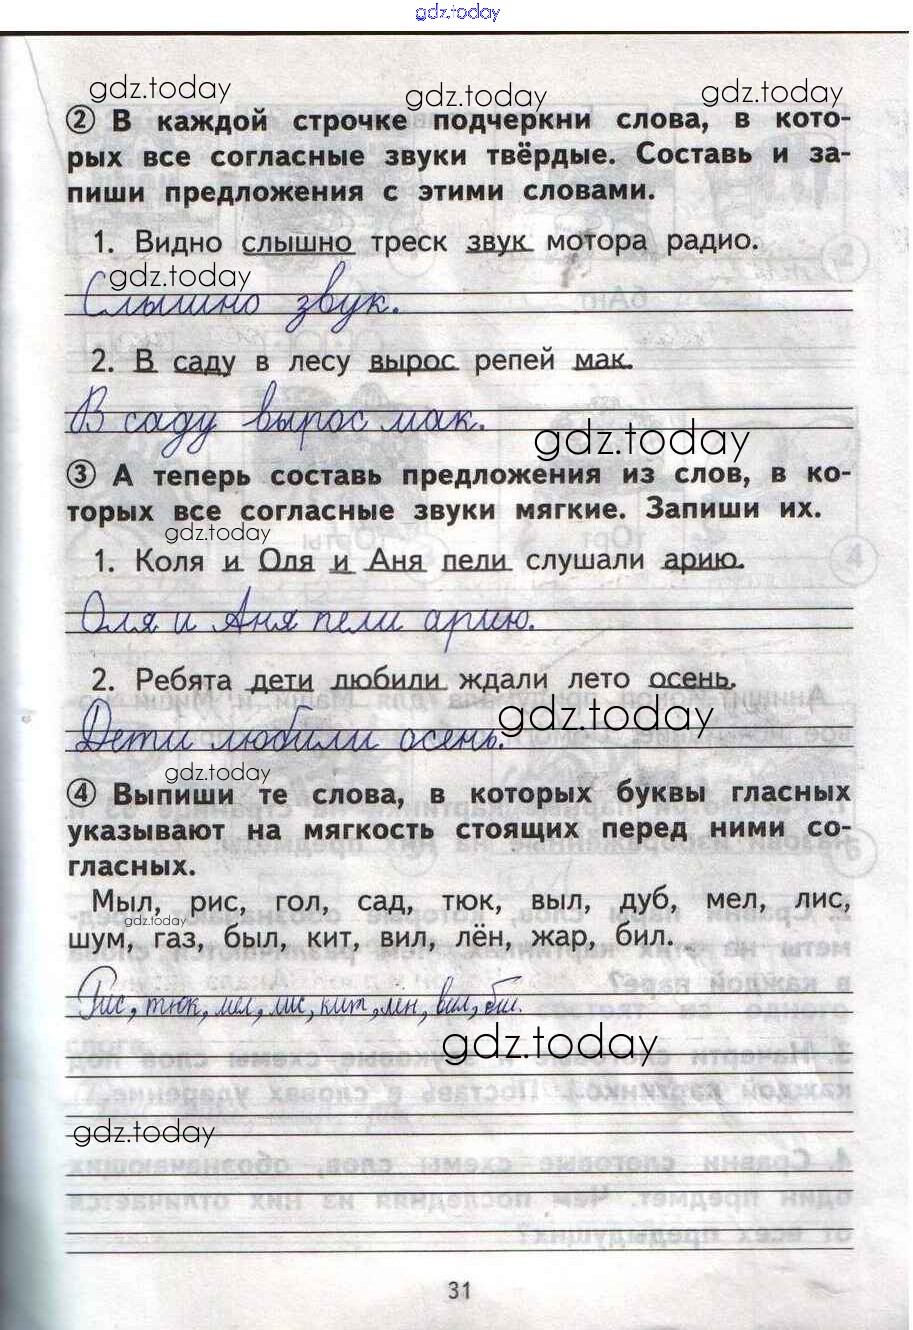 gdz.today
gdz.today gdz.today gdz.today
② В каждой строчке подчеркни слова, в кото-
рых все согласные звуки твёрдые. Составь и за-
пиши предложения с этими словами.
1. Видно слышно треск звук мотора радио.
gdz.today
Слышно звук.
2. В саду в лесу вырос репей мак.
В саду вырос мак.
gdz.today
③ А теперь составь предложения из слов, в ко-
торых все согласные звуки мягкие. Запиши их.
gdz.today
1. Коля и Оля и Аня пели слушали арию.
Оля и Аня пели арию.
2. Ребята дети любили ждали лето осень.
gdz.today
Дети любили осень.
gdz.today
④ Выпиши те слова, в которых буквы гласных
указывают на мягкость стоящих перед ними со-
гласных.
Мыл, рис, гол, сад, тюк, выл, дуб, мел, лис,
gdz.today
шум, газ, был, кит, вил, лён, жар, бил.
Рис, тюк, мел, лис, кит, лен, вил, бил.
gdz.today
gdz.today
31